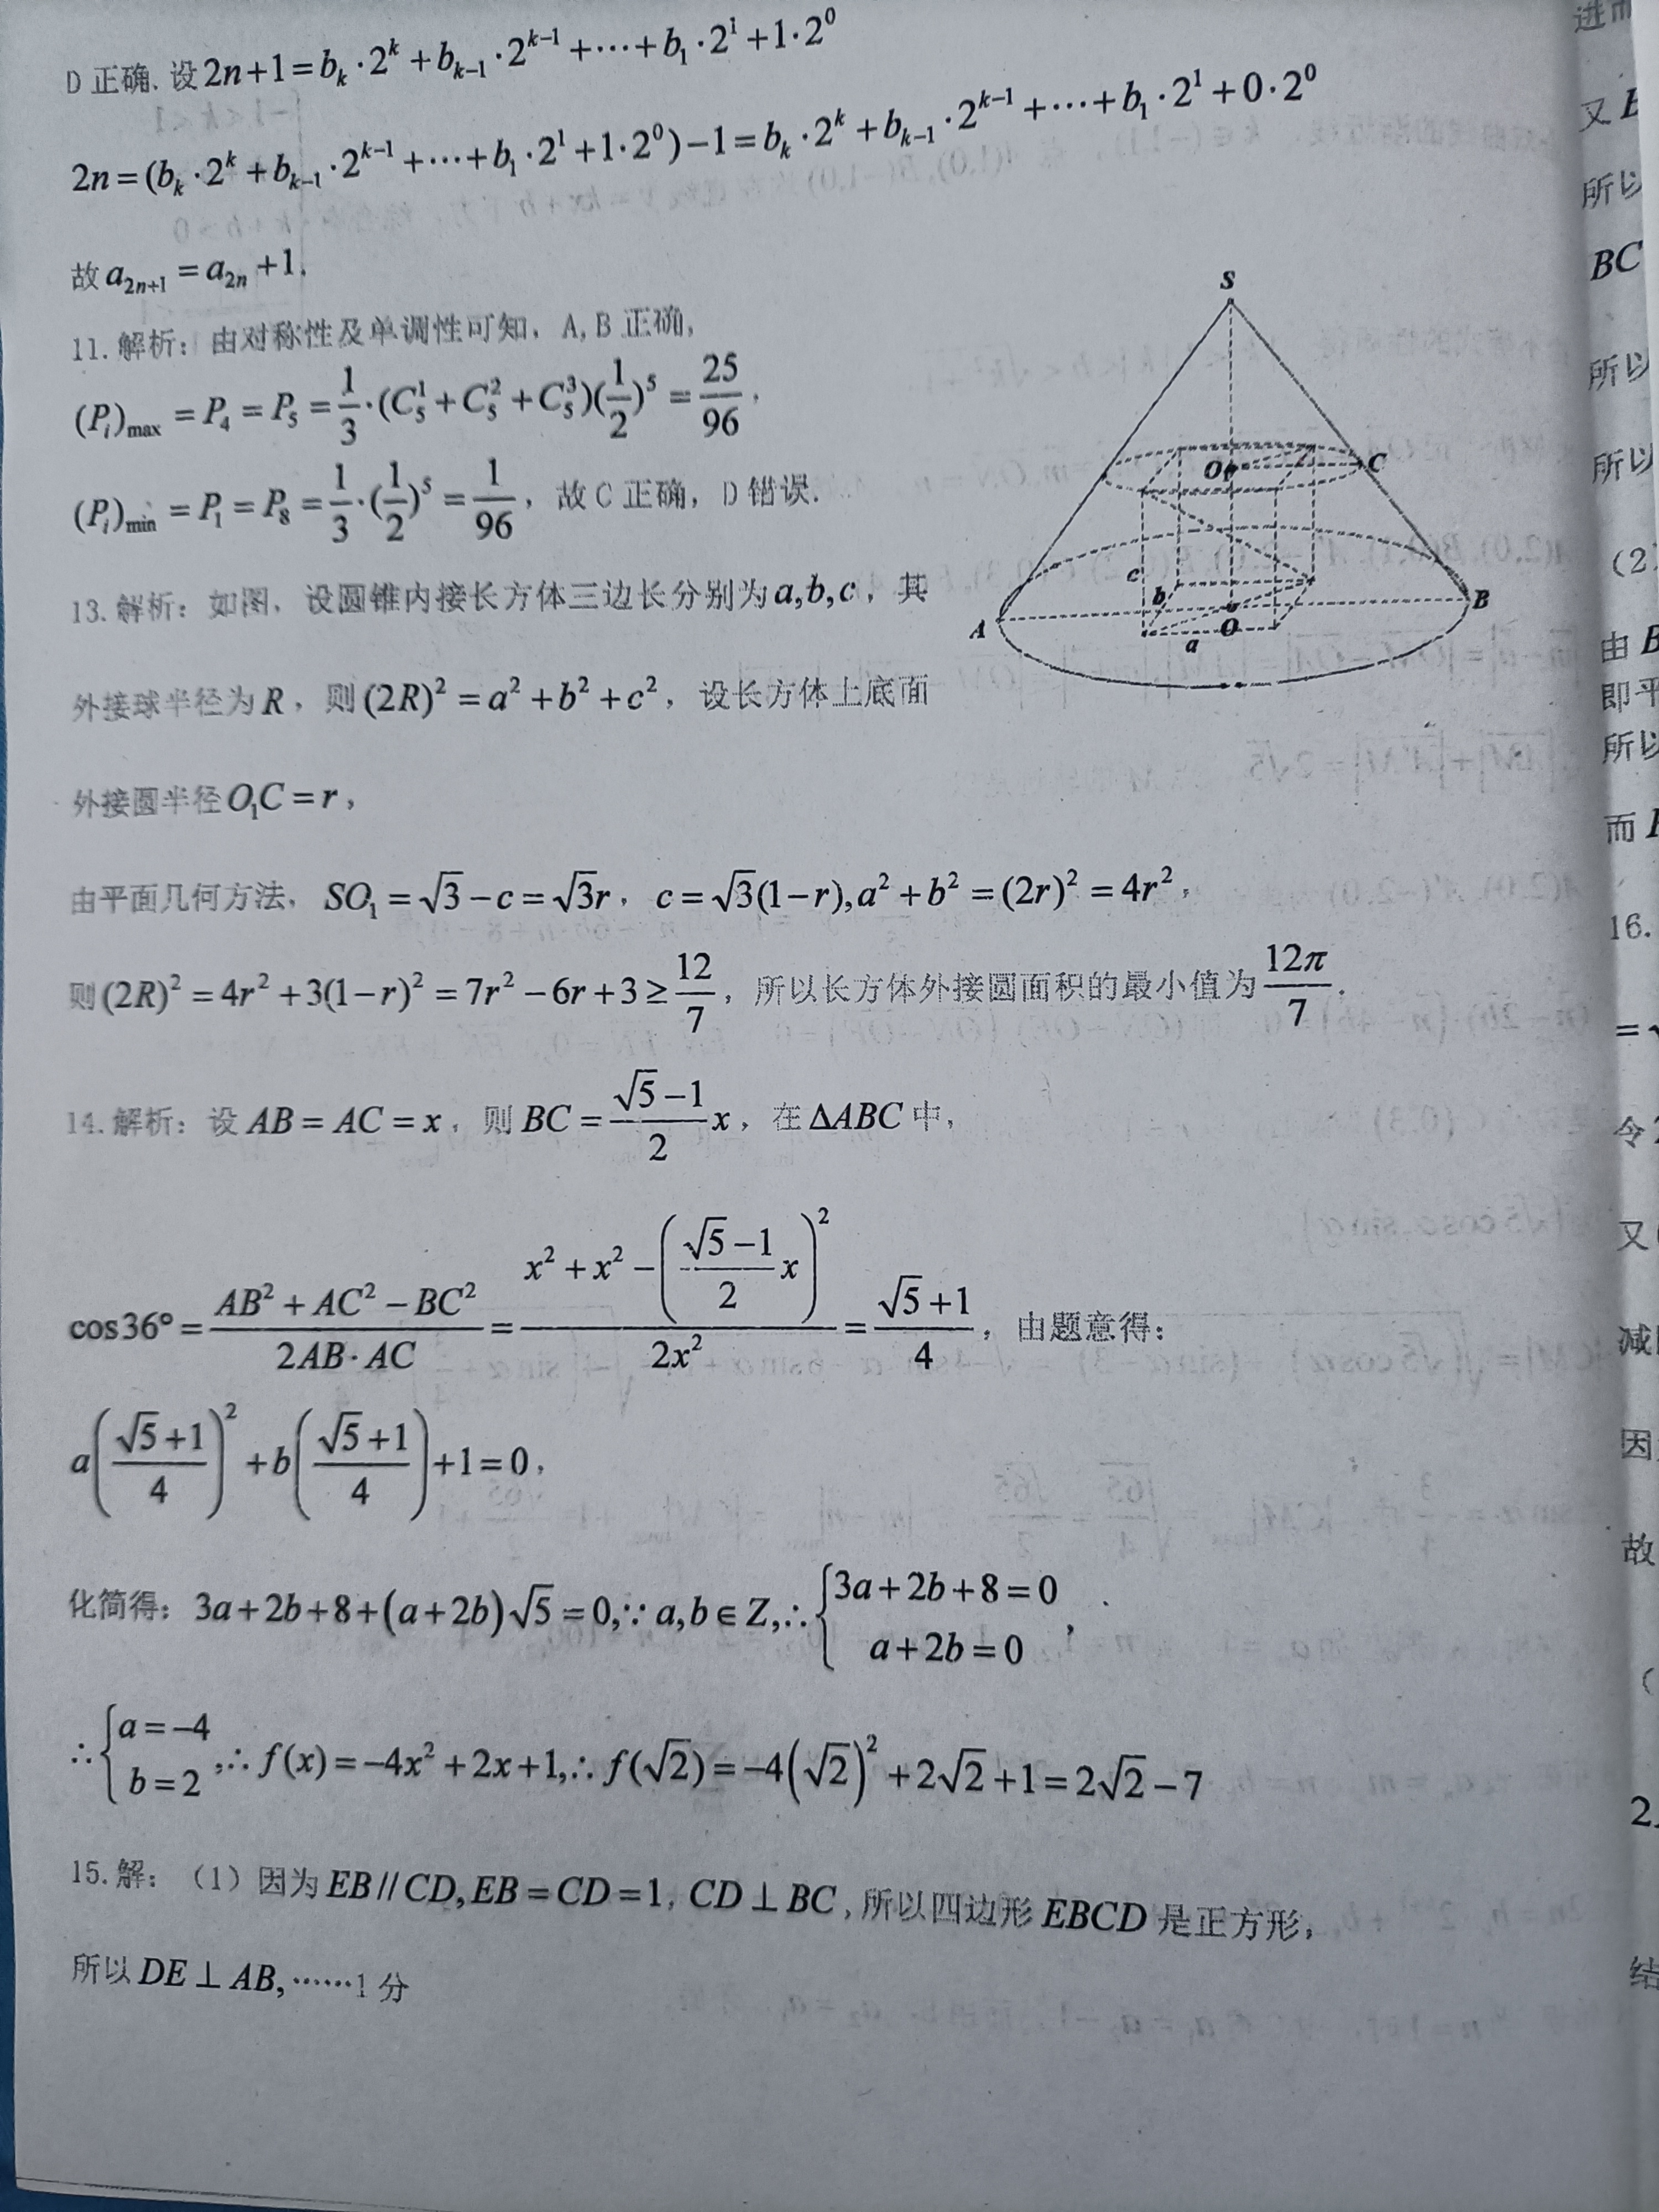 D 正确. 设 2n+1=b_k·2^k+b_{k-1}·2^{k-1}+···+b_1·2^1+1·2^0
2n=(b_k·2^k+b_{k-1}·2^{k-1}+···+b_1·2^1+1·2^0)-1=b_k·2^k+b_{k-1}·2^{k-1}+···+b_1·2^1+0·2^0
故 a_{2n+1}=a_{2n}+1.
11.解析：由对称性及单调性可知，A,B 正确，
(P_i)_max=P_4=P_5=1/3·(C_5^1+C_5^2+C_5^3)(1/2)^5=25/96，
(P_i)_min=P_1=P_8=1/3·(1/2)^5=1/96，故 C 正确，D 错误.
S
O_1
C
c
b
A
a
O
B
13.解析：如图，设圆锥内接长方体三边长分别为 a,b,c，其
外接球半径为 R，则 (2R)^2=a^2+b^2+c^2，设长方体上底面
外接圆半径 O_1C=r，
由平面几何方法，SO_1=√3-c=√3r，c=√3(1-r),a^2+b^2=(2r)^2=4r^2，
则 (2R)^2=4r^2+3(1-r)^2=7r^2-6r+3≥12/7，所以长方体外接圆面积的最小值为 12π/7.
14.解析：设 AB=AC=x，则 BC=(√5-1)/2 x，在 ΔABC 中，
cos36°=(AB^2+AC^2-BC^2)/(2AB·AC)=(x^2+x^2-((√5-1)/2 x)^2)/(2x^2)=(√5+1)/4，由题意得：
a((√5+1)/4)^2+b((√5+1)/4)+1=0，
化简得：3a+2b+8+(a+2b)√5=0,∵a,b∈Z,∴{3a+2b+8=0
a+2b=0，
∴{a=-4
b=2,∴f(x)=-4x^2+2x+1,∴f(√2)=-4(√2)^2+2√2+1=2√2-7
15.解：（1）因为 EB//CD,EB=CD=1，CD⊥BC,所以四边形 EBCD 是正方形，
所以 DE⊥AB,······1 分
又
所以
BC
所以
所以
（2
由 B
即平
所以
而
16.
=
令
又
减
因
故
（
2
结